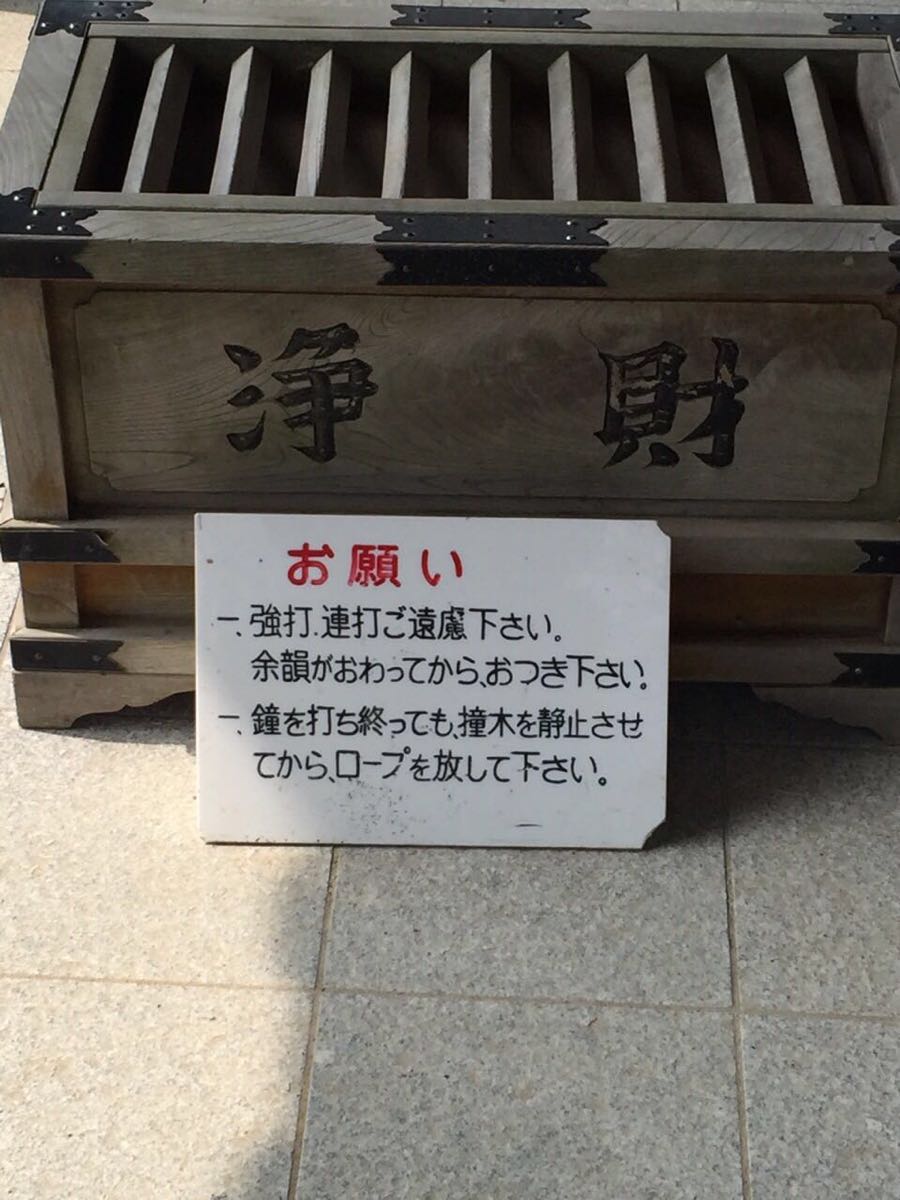 浄財
お願い
一、強打.連打ご遠慮下さい。
余韻がおわってから、おつき下さい。
一、鐘を打ち終っても、撞木を静止させ
てから、ロープを放して下さい。